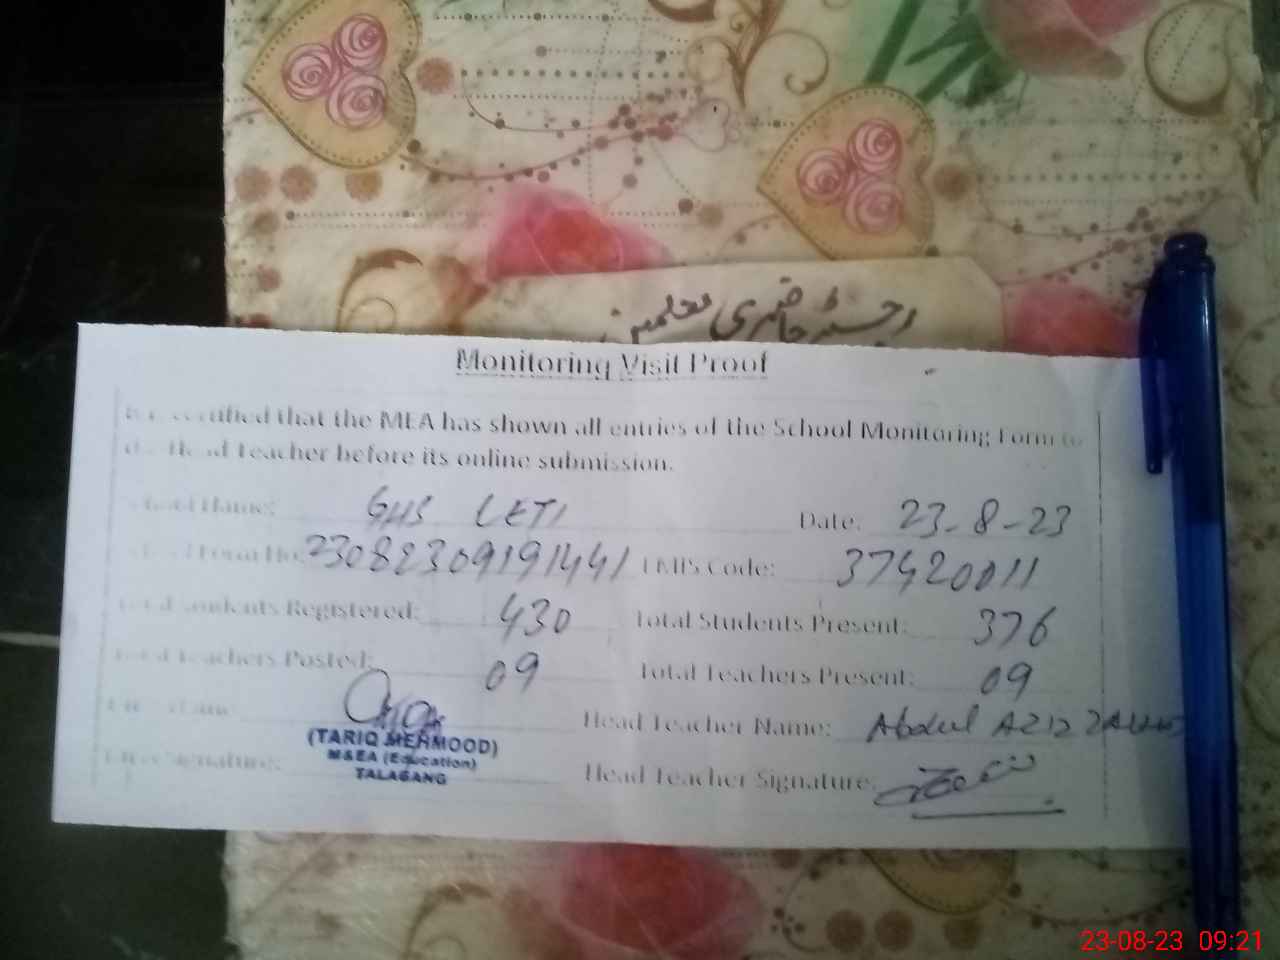 رجسٹر حاضری معلمین
Monitoring Visit Proof
certified that the MEA has shown all entries of the School Monitoring Form to
the Head Teacher before its online submission.
School Name: GHS LETI Date: 23-8-23
Form No: 23082309191441 EMIS Code: 37420011
Total Students Registered: 430 Total Students Present: 376
Total Teachers Posted: 09 Total Teachers Present: 09
Head Teacher Name: Abdul AZIZ
(TARIQ MEHMOOD)
M&EA (Education)
TALAGANG
Signature: Head Teacher Signature:
23-08-23 09:21